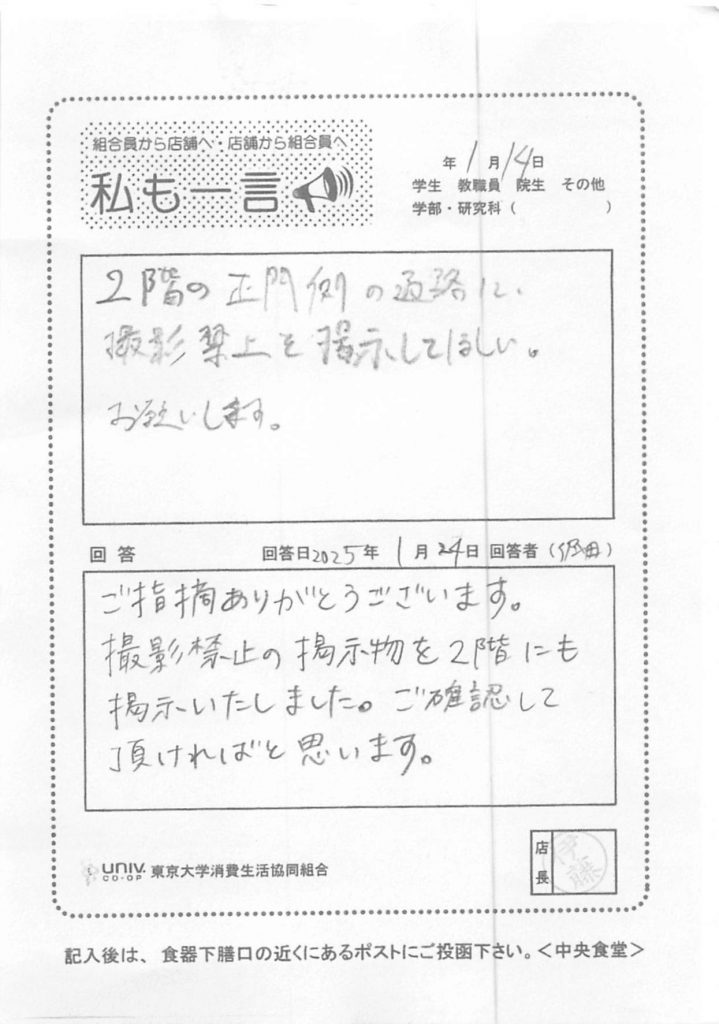 組合員から店舗へ・店舗から組合員へ
私も一言
年 1月14日
学生 教職員 院生 その他
学部・研究科（ ）
2階の正門側の通路に、
撮影禁止を掲示してほしい。
お願いします。
回答 回答日2025年 1月24日 回答者（ ）
ご指摘ありがとうございます。
撮影禁止の掲示物を2階にも
掲示いたしました。ご確認して
頂ければと思います。
UNIV. CO-OP 東京大学消費生活協同組合
店長 伊藤
記入後は、食器下膳口の近くにあるポストにご投函下さい。＜中央食堂＞